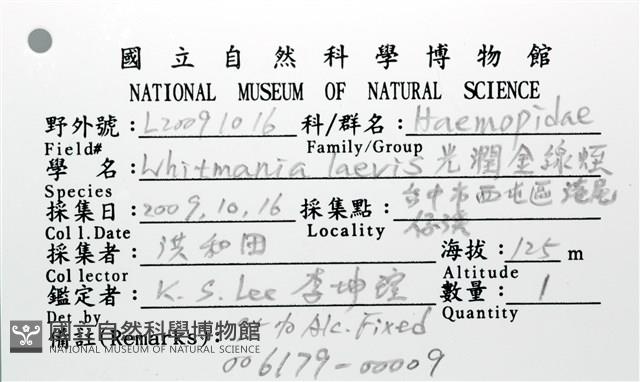 國立自然科學博物館
NATIONAL MUSEUM OF NATURAL SCIENCE
野外號：L20091016 科/群名：Haemopidae
Field# Family/Group
學 名：Whitmania laevis 光潤金線蛭
Species
採集日：2009,10,16 採集點：台中市西屯區港尾
Coll.Date Locality 仔溪
採集者：洪和田 海拔：125 m
Collector Altitude
鑑定者：K.S.Lee 李坤瑄 數量：1
Det by Quantity
備註(Remarks)： % Alc. Fixed
006179-00009
國立自然科學博物館
NATIONAL MUSEUM OF NATURAL SCIENCE